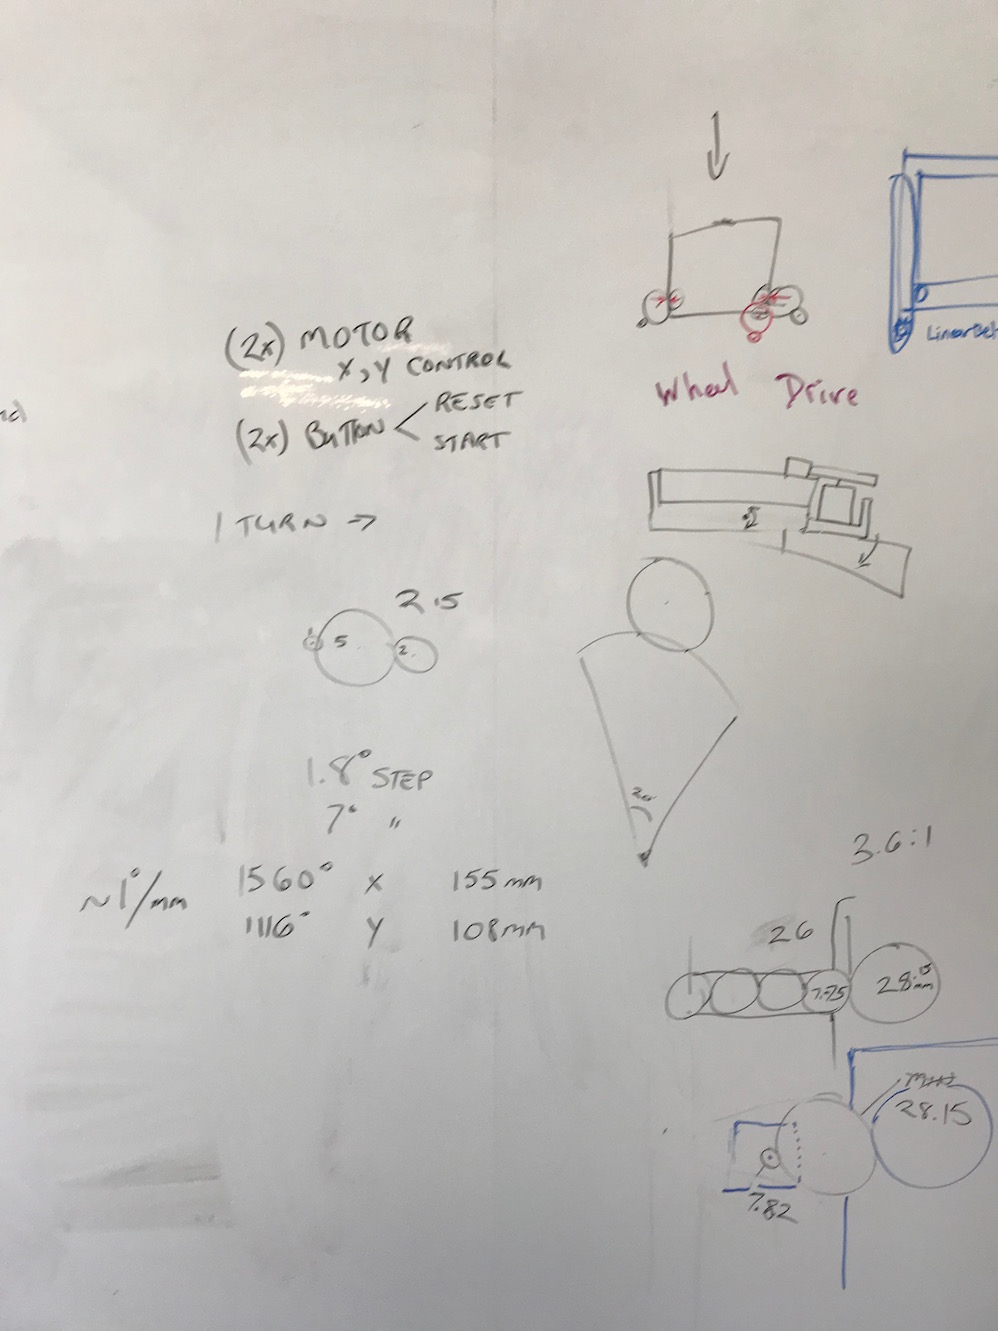 (2x) MOTOR
X, Y CONTROL
(2x) BUTTON < RESET
START
1 TURN →
2.5
5
2
1.8° STEP
7° "
~1°/mm
1560° X 155mm
1116° Y 108mm
Wheel Drive
Linear Bel
3.6:1
26
7.75
28
mm
28.15
7.82